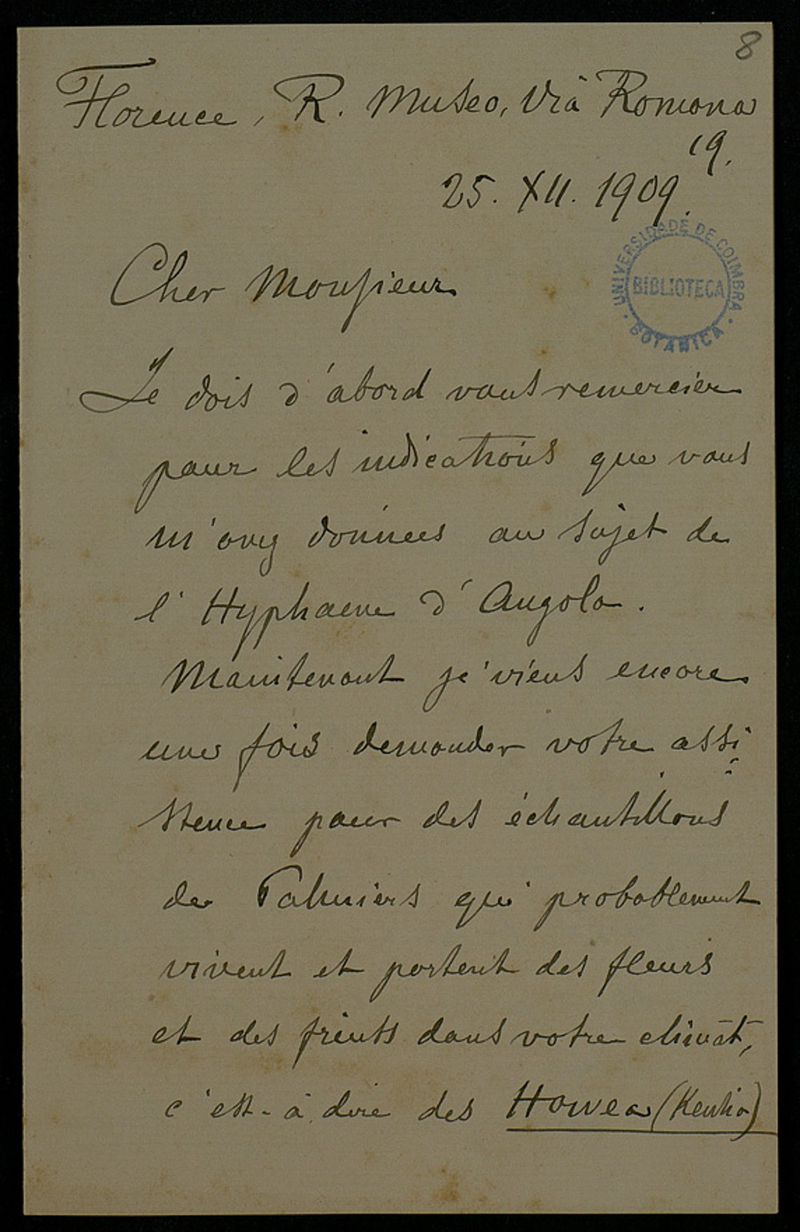 8
Florence, R. Museo, Via Romana
19.
25. XII. 1909.
UNIVERSIDADE DE COIMBRA
BIBLIOTECA
BOTANICA
Cher Monsieur
Je dois d'abord vous remercier
pour les indications que vous
m'avez données au sujet de
l'Hyphaene d'Angola.
Maintenant je viens encore
une fois demander votre assi
stence pour des échantillons
de Palmiers qui probablement
vivent et portent des fleurs
et des fruits dans votre climat,
c'est-à dire des Howea (Kentia)